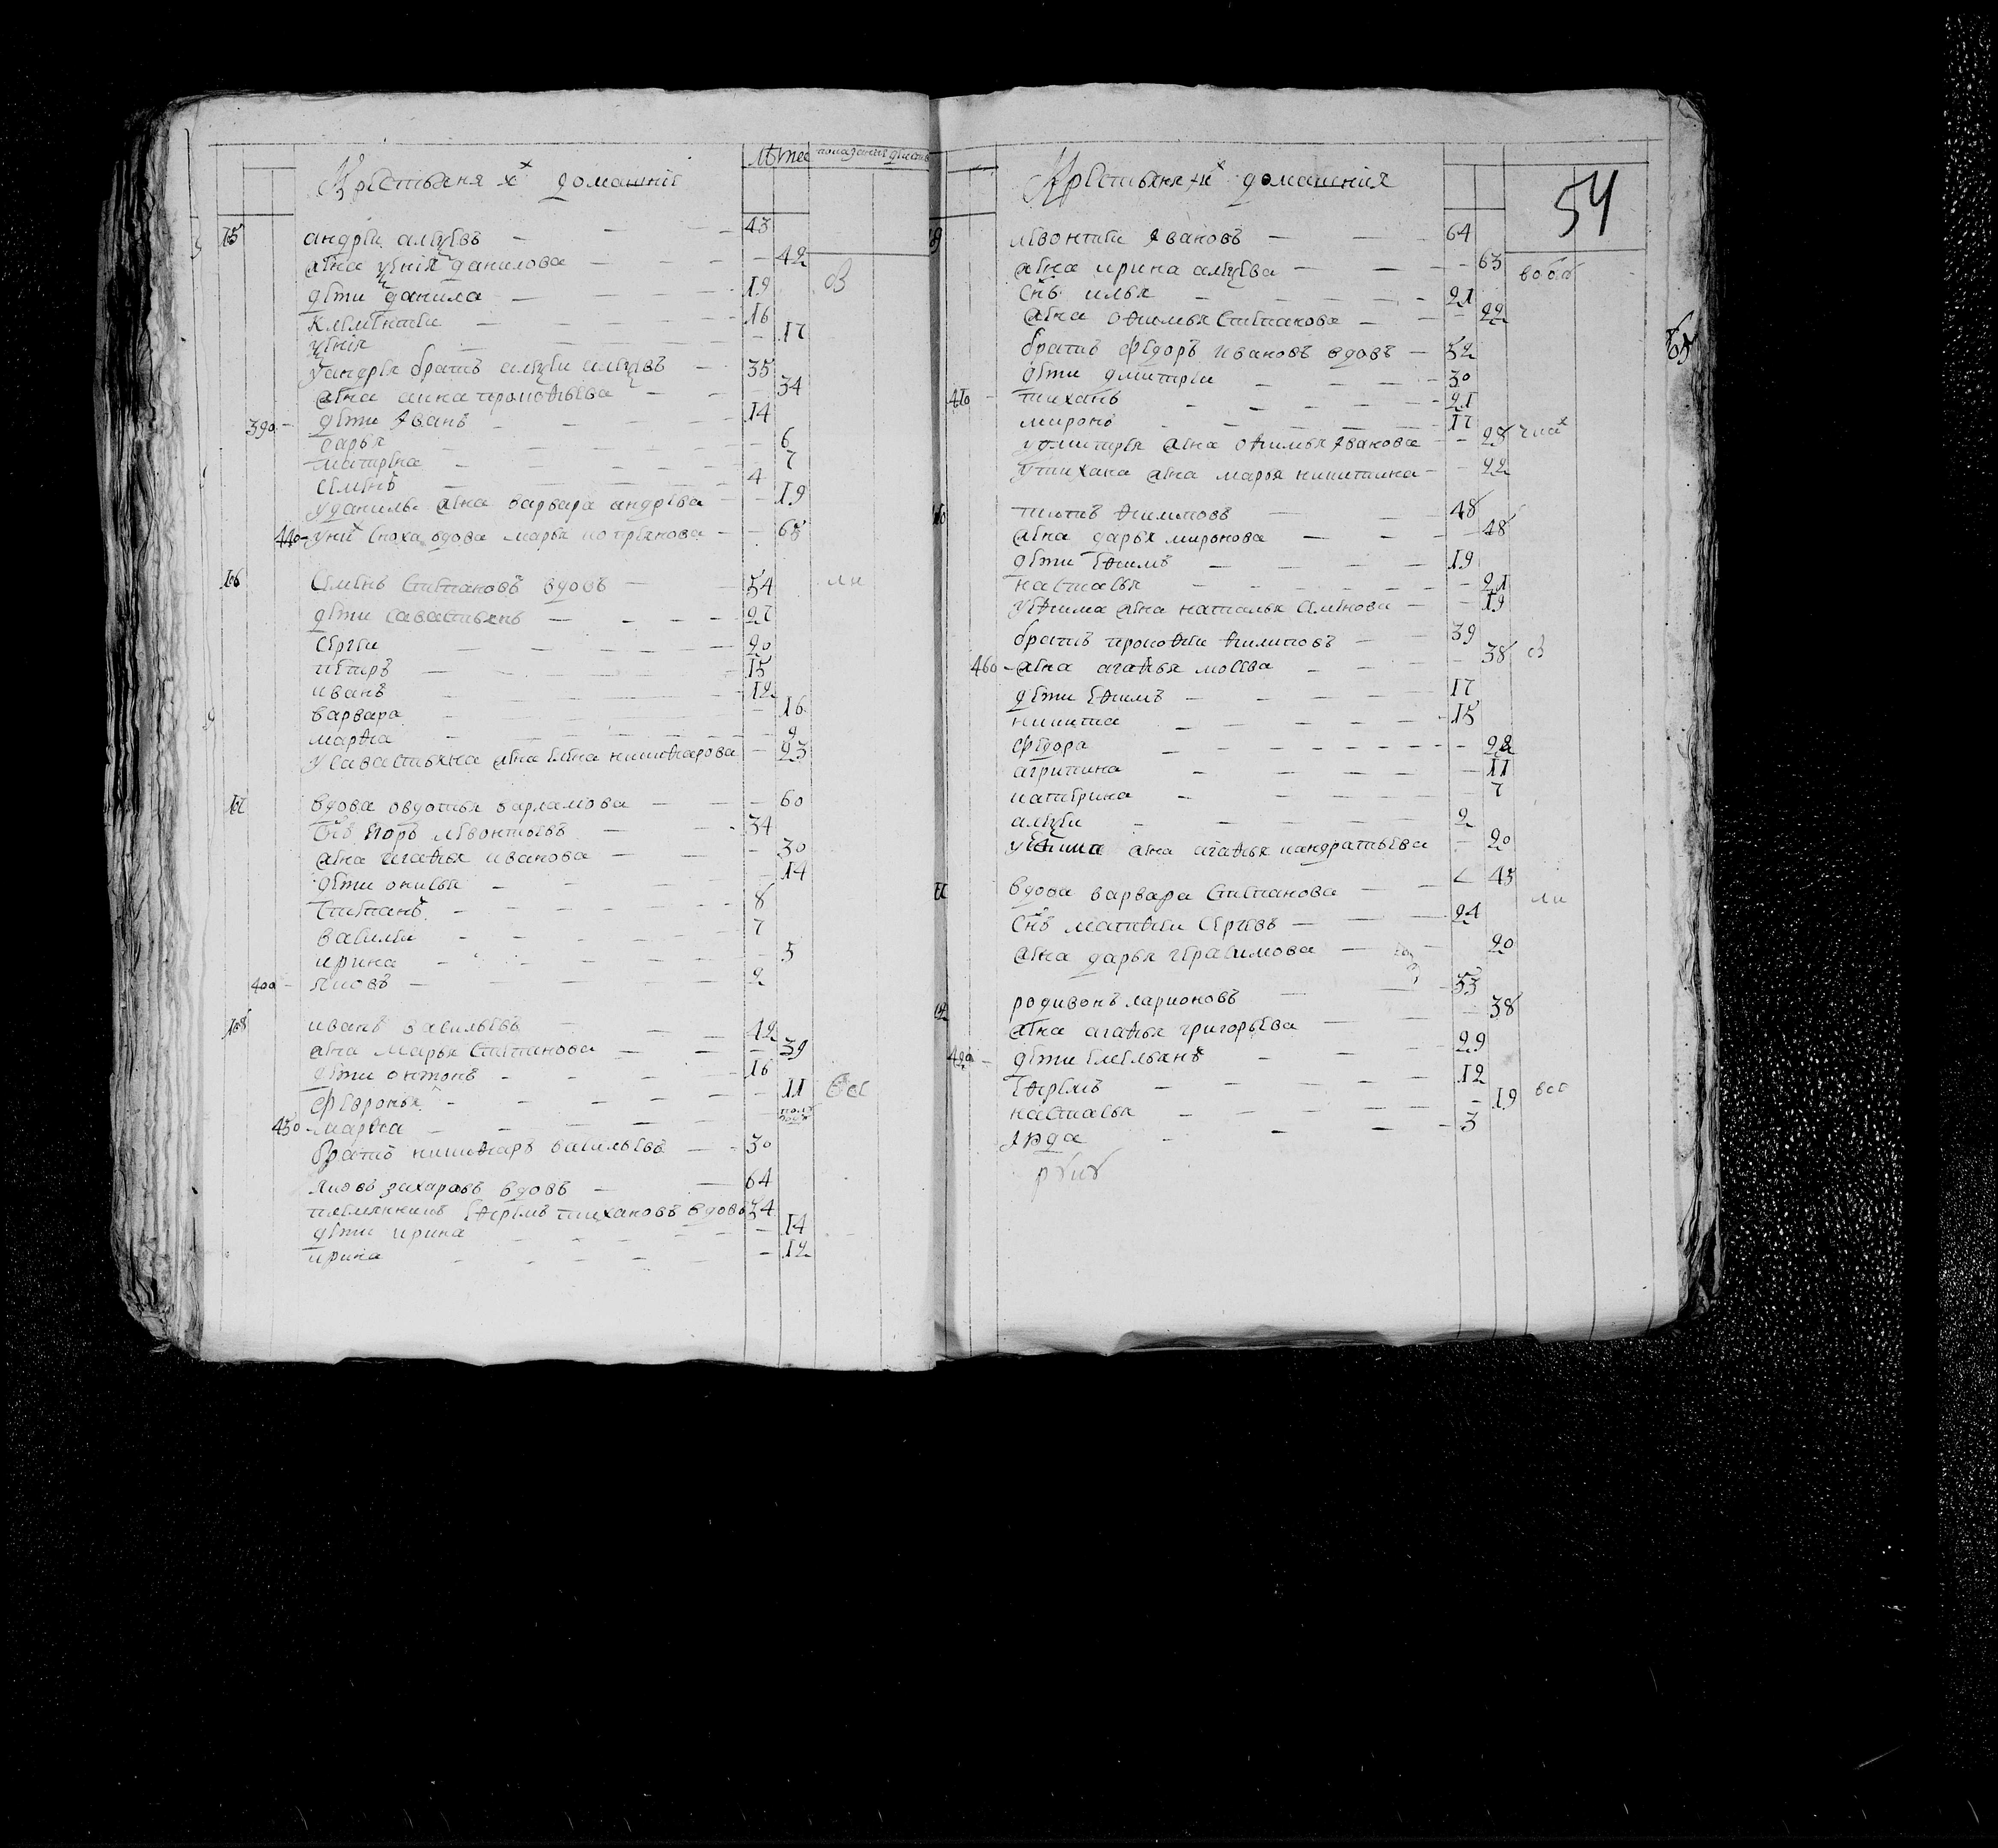 Крестьяня ихъ домашние
105 андреи алеѯеевъ 43
жена ѯения данилова 42
дети данила 19
клементеи 16
ѯения 17
у андрея братъ алеѯеи алеѯеевъ 35
жена анна тромоѳеева 34
390 дети Иванъ 14
дарья 6
матрена 7
семенъ 4
у данилы жена варвара андреева 19
440 у нихъ сноха вдова марья 65
106 Семенъ степановъ вдовъ 54
дети савастьянъ 27
сергеи 20
петръ 15
иванъ 12
варвара 16
марѳа 9
у савастьяна жена елена никиѳарова 23
107 вдова овдотья варламова 60
снъ егоръ левонтьевъ 34
жена агаѳья иванова 30
дети онисья 14
степанъ 8
василеи 7
ирина 5
400 яковъ 2
108 иванъ васильевъ 42
жена марья степанова 39
дети онтонъ 16
февронья 11
450 марѳа
братъ никиѳаръ васильевъ 30
яковъ захаровъ вдовъ 64
племянникъ еѳремъ тихановъ вдовъ 34
дети ирина 14
ирина 12
Крестьяня ихъ домашния
54
левонтеи Ивановъ 64
жена ирина алеѯеева 63
снъ илья 21
жена оѳимья степанова 22
братъ федоръ ивановъ вдовъ 52
дети дмитреи 30
410 тиханъ 21
миронъ 17
у дмитрея жена оѳимья Иванова 28
у тихана жена марья никитина 22
титъ ѳилиповъ 48
жена дарья миронова 48
дети еѳимъ 19
настасья 21
у еѳима жена наталья семенова 19
братъ прокоѳеи ѳилиповъ 39
460 жена агаѳья мосеева 38
дети еѳимъ 17
никита 15
федора 22
агрипина 11
катерина 7
алеѯеи 2
у еѳима жена агаѳья кандратьева 20
вдова варвара степанова 45
снъ матвеи сергеевъ 24
жена дарья герасимова 20
родивонъ ларионовъ 53
жена агаѳья григорьева 38
420 дети емельянъ 29
еѳремъ 12
настасья 19
3